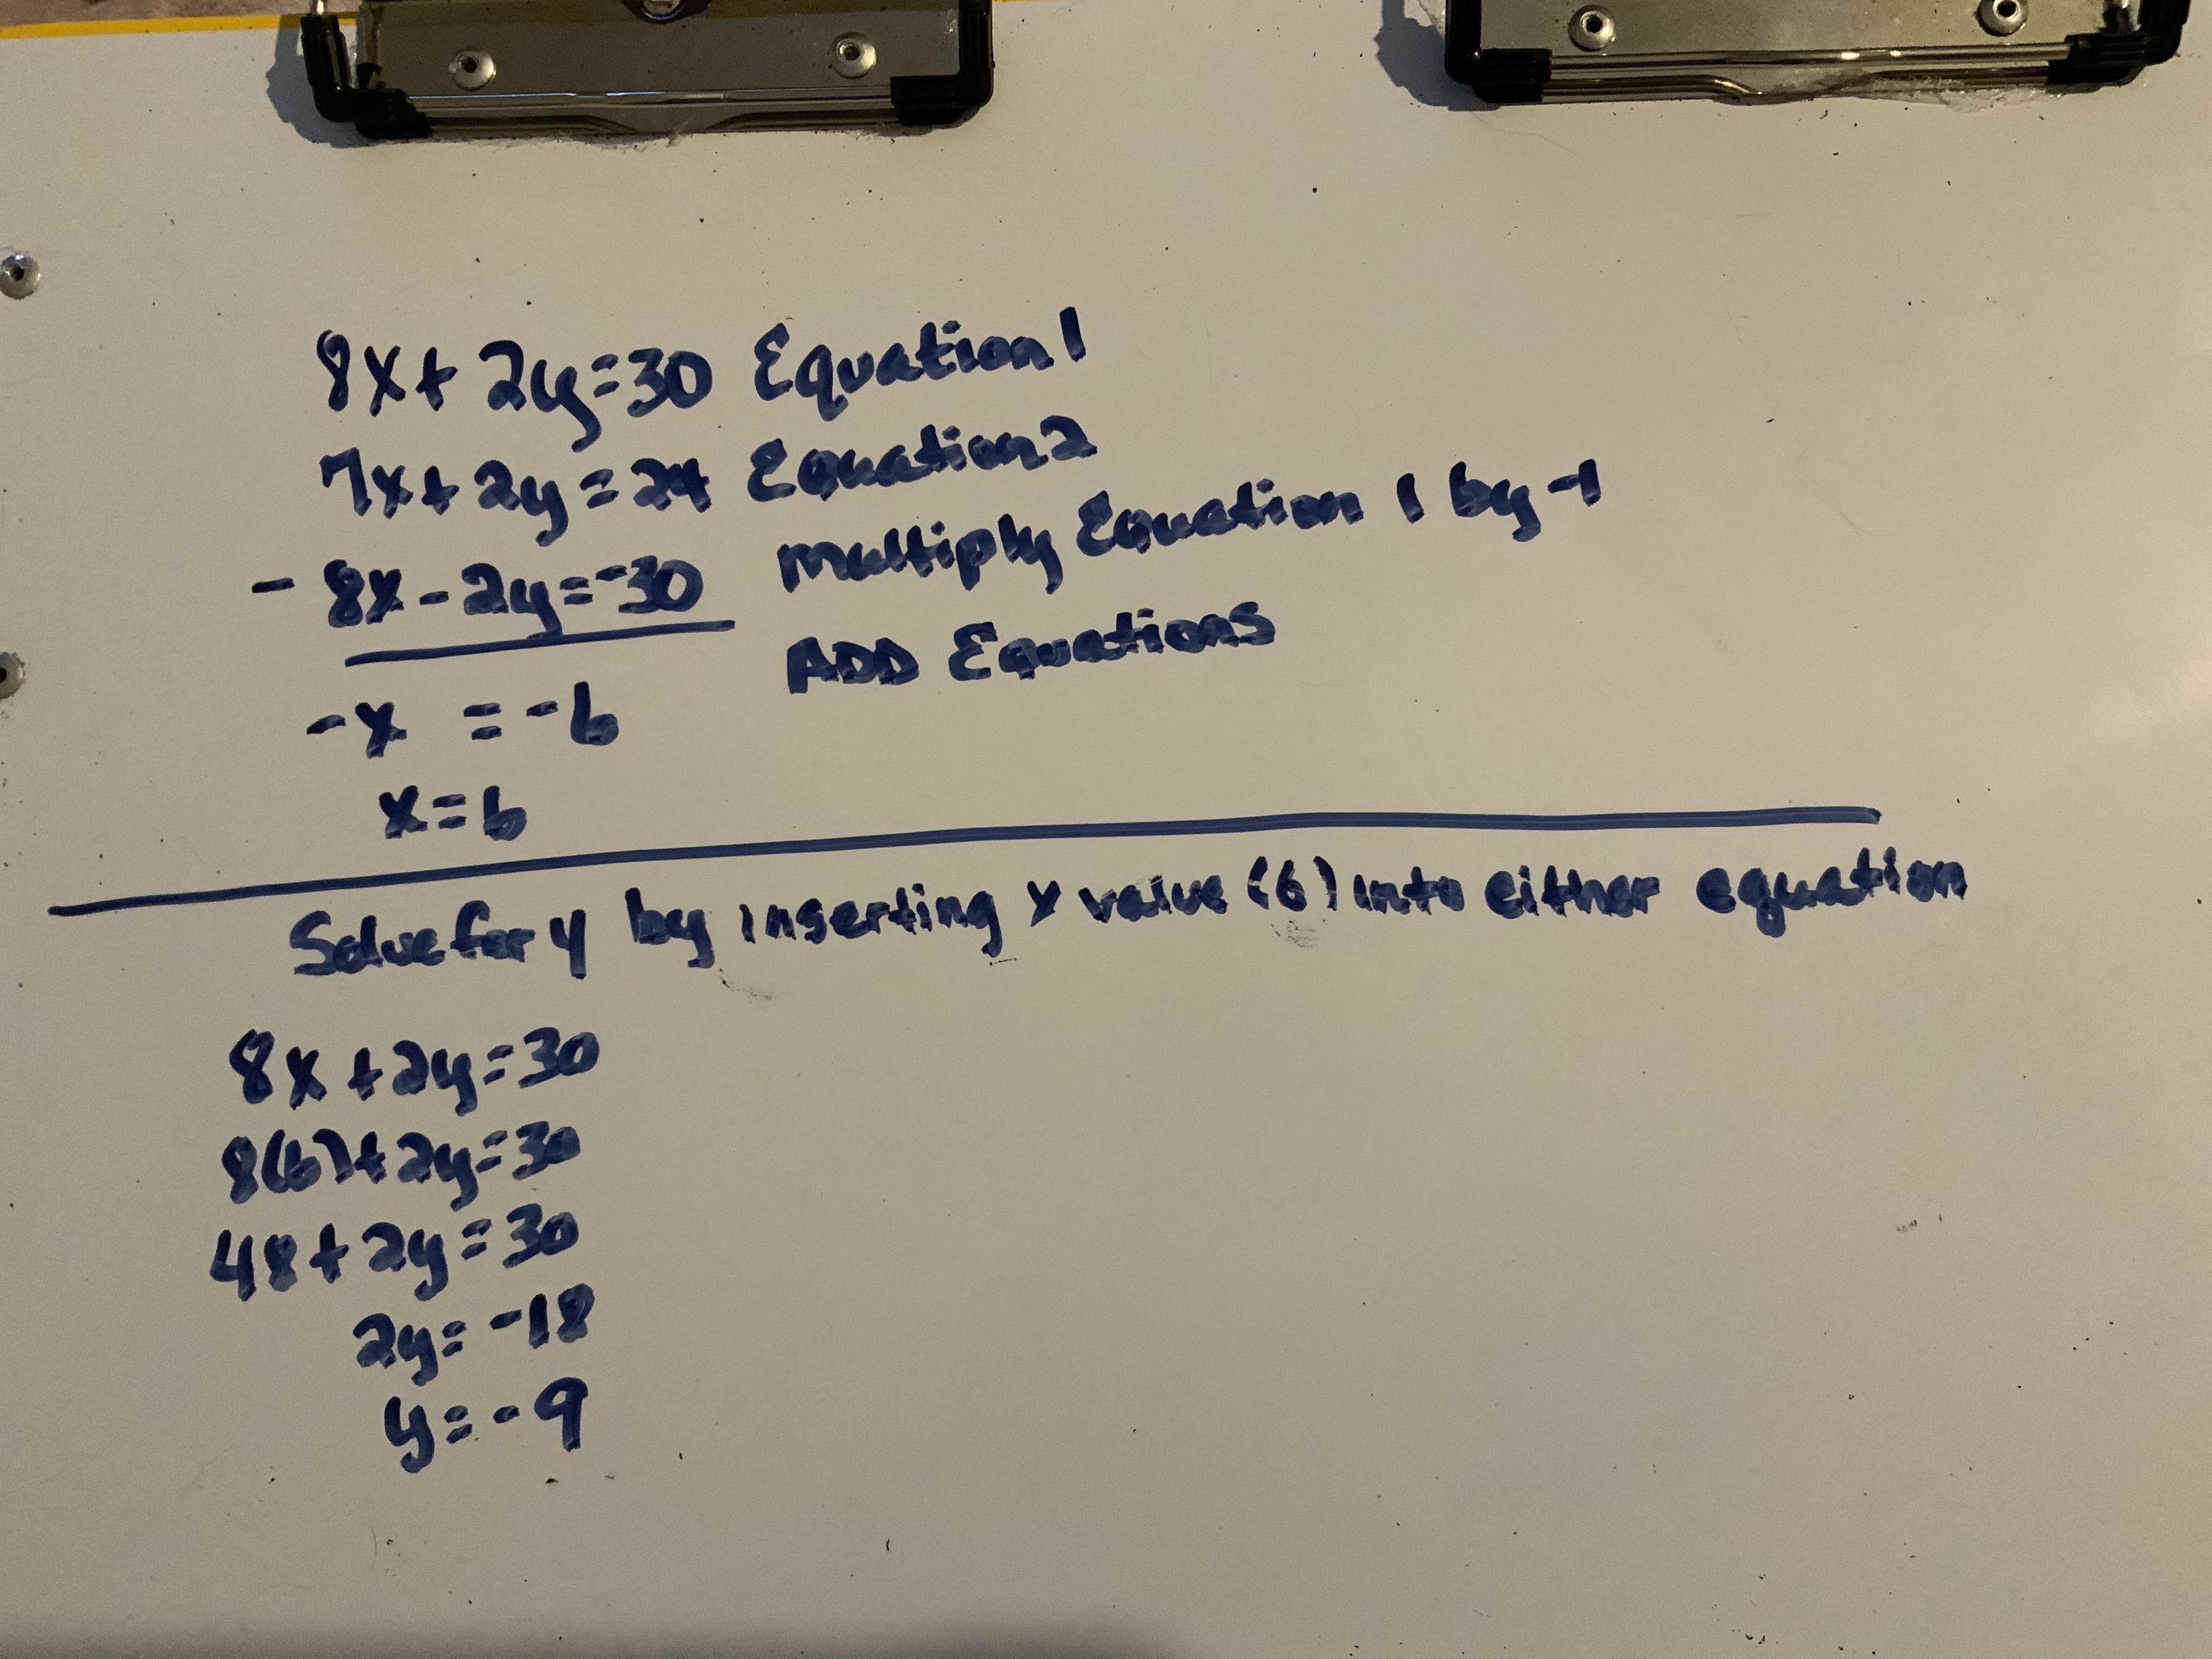 8x + 2y = 30 Equation 1
7x + 2y = 24 Equation 2
- 8x - 2y = -30 multiply Equation 1 by -1
ADD Equations
-x = -6
x = 6
Solve for y by inserting x value (6) into either equation
8x + 2y = 30
8(6) + 2y = 30
48 + 2y = 30
2y = -18
y = -9